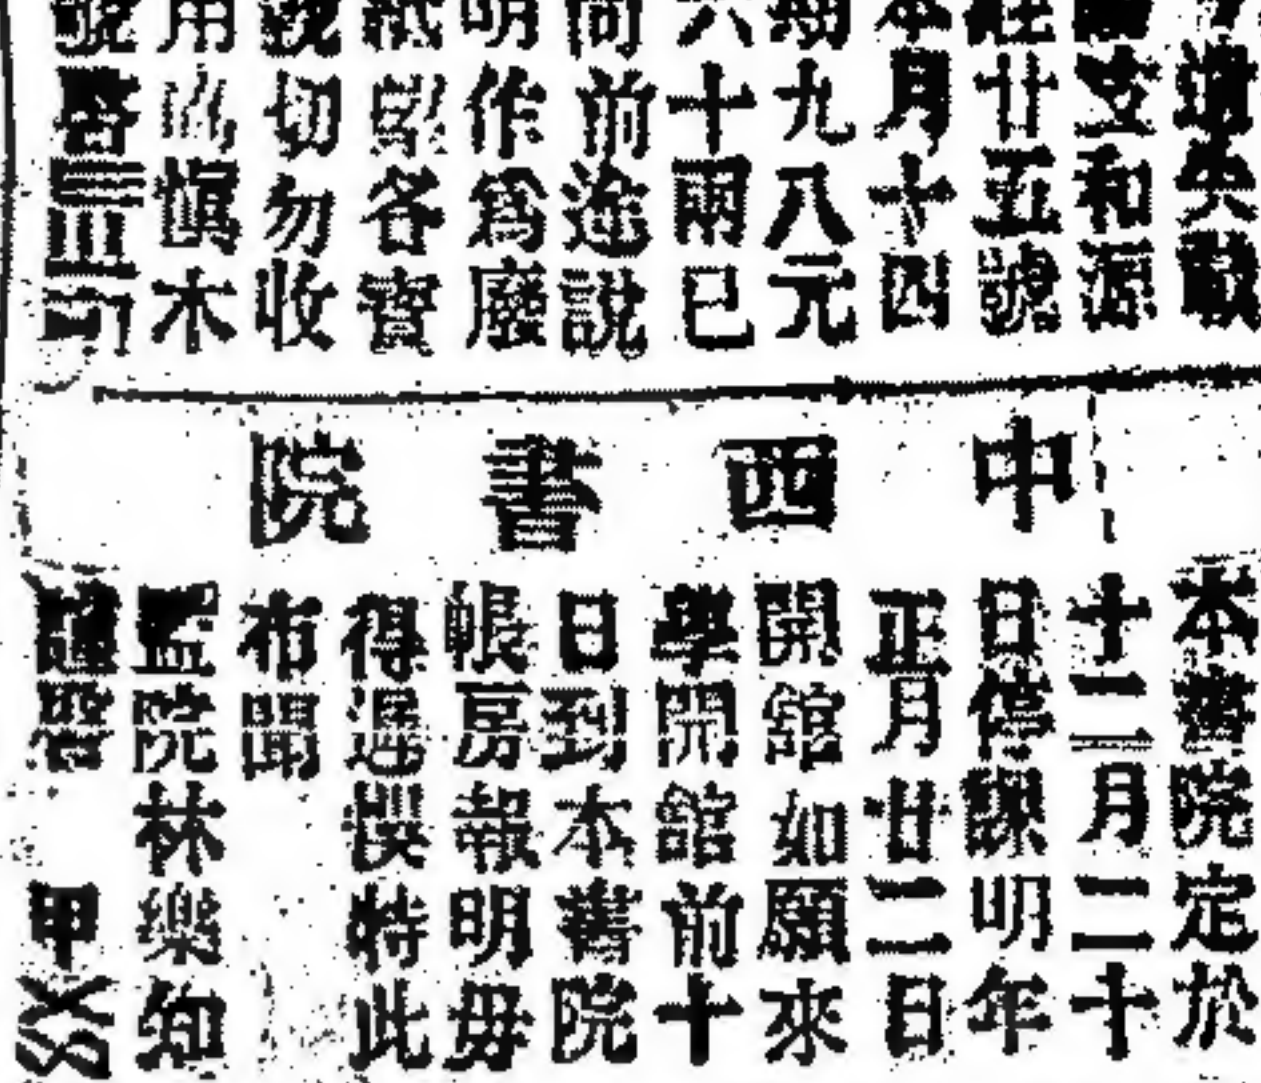 塡英戴
支和源
廿五號
本月十四
期九八元
六十兩已
向前途說
明作爲廢
紙祈各寶
號切勿收
用爲愼木
號啓
中西書院
本書院定於
十二月二十
日停課明年
正月廿二日
開館如願來
學開館前十
日到本書院
帳房報明毋
得遲悞特此
布聞
監院林樂知
謹啓 甲